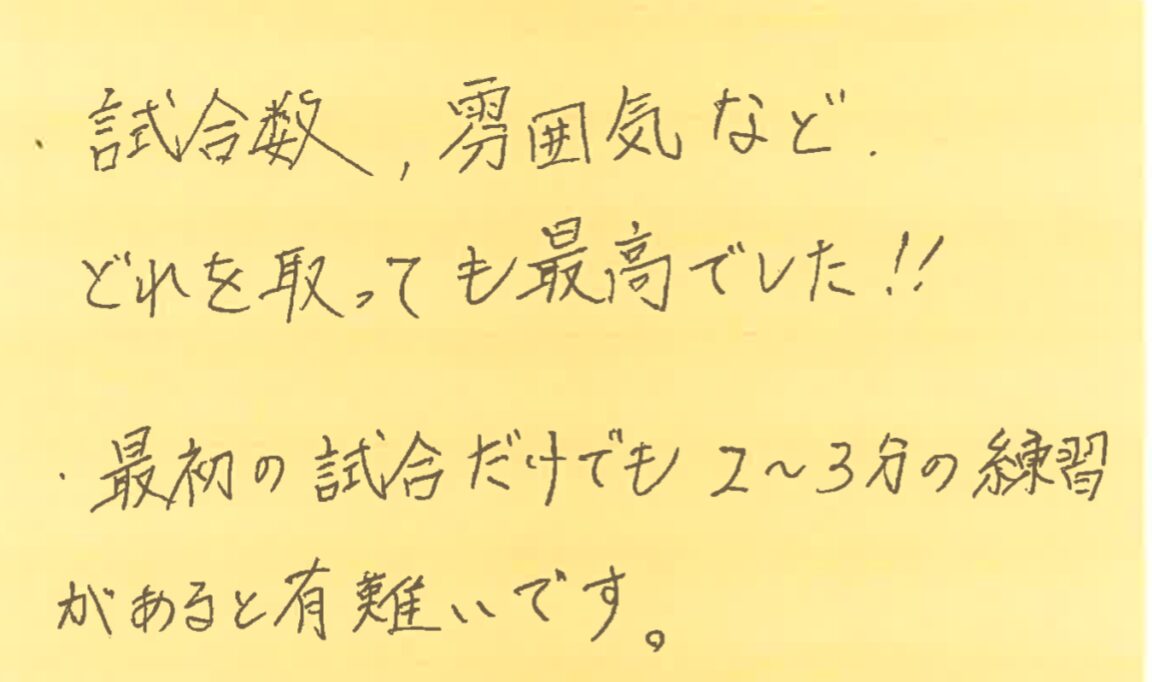 ・試合数,雰囲気など.
どれを取っても最高でした!!
・最初の試合だけでも2~3分の練習
があると有難いです。